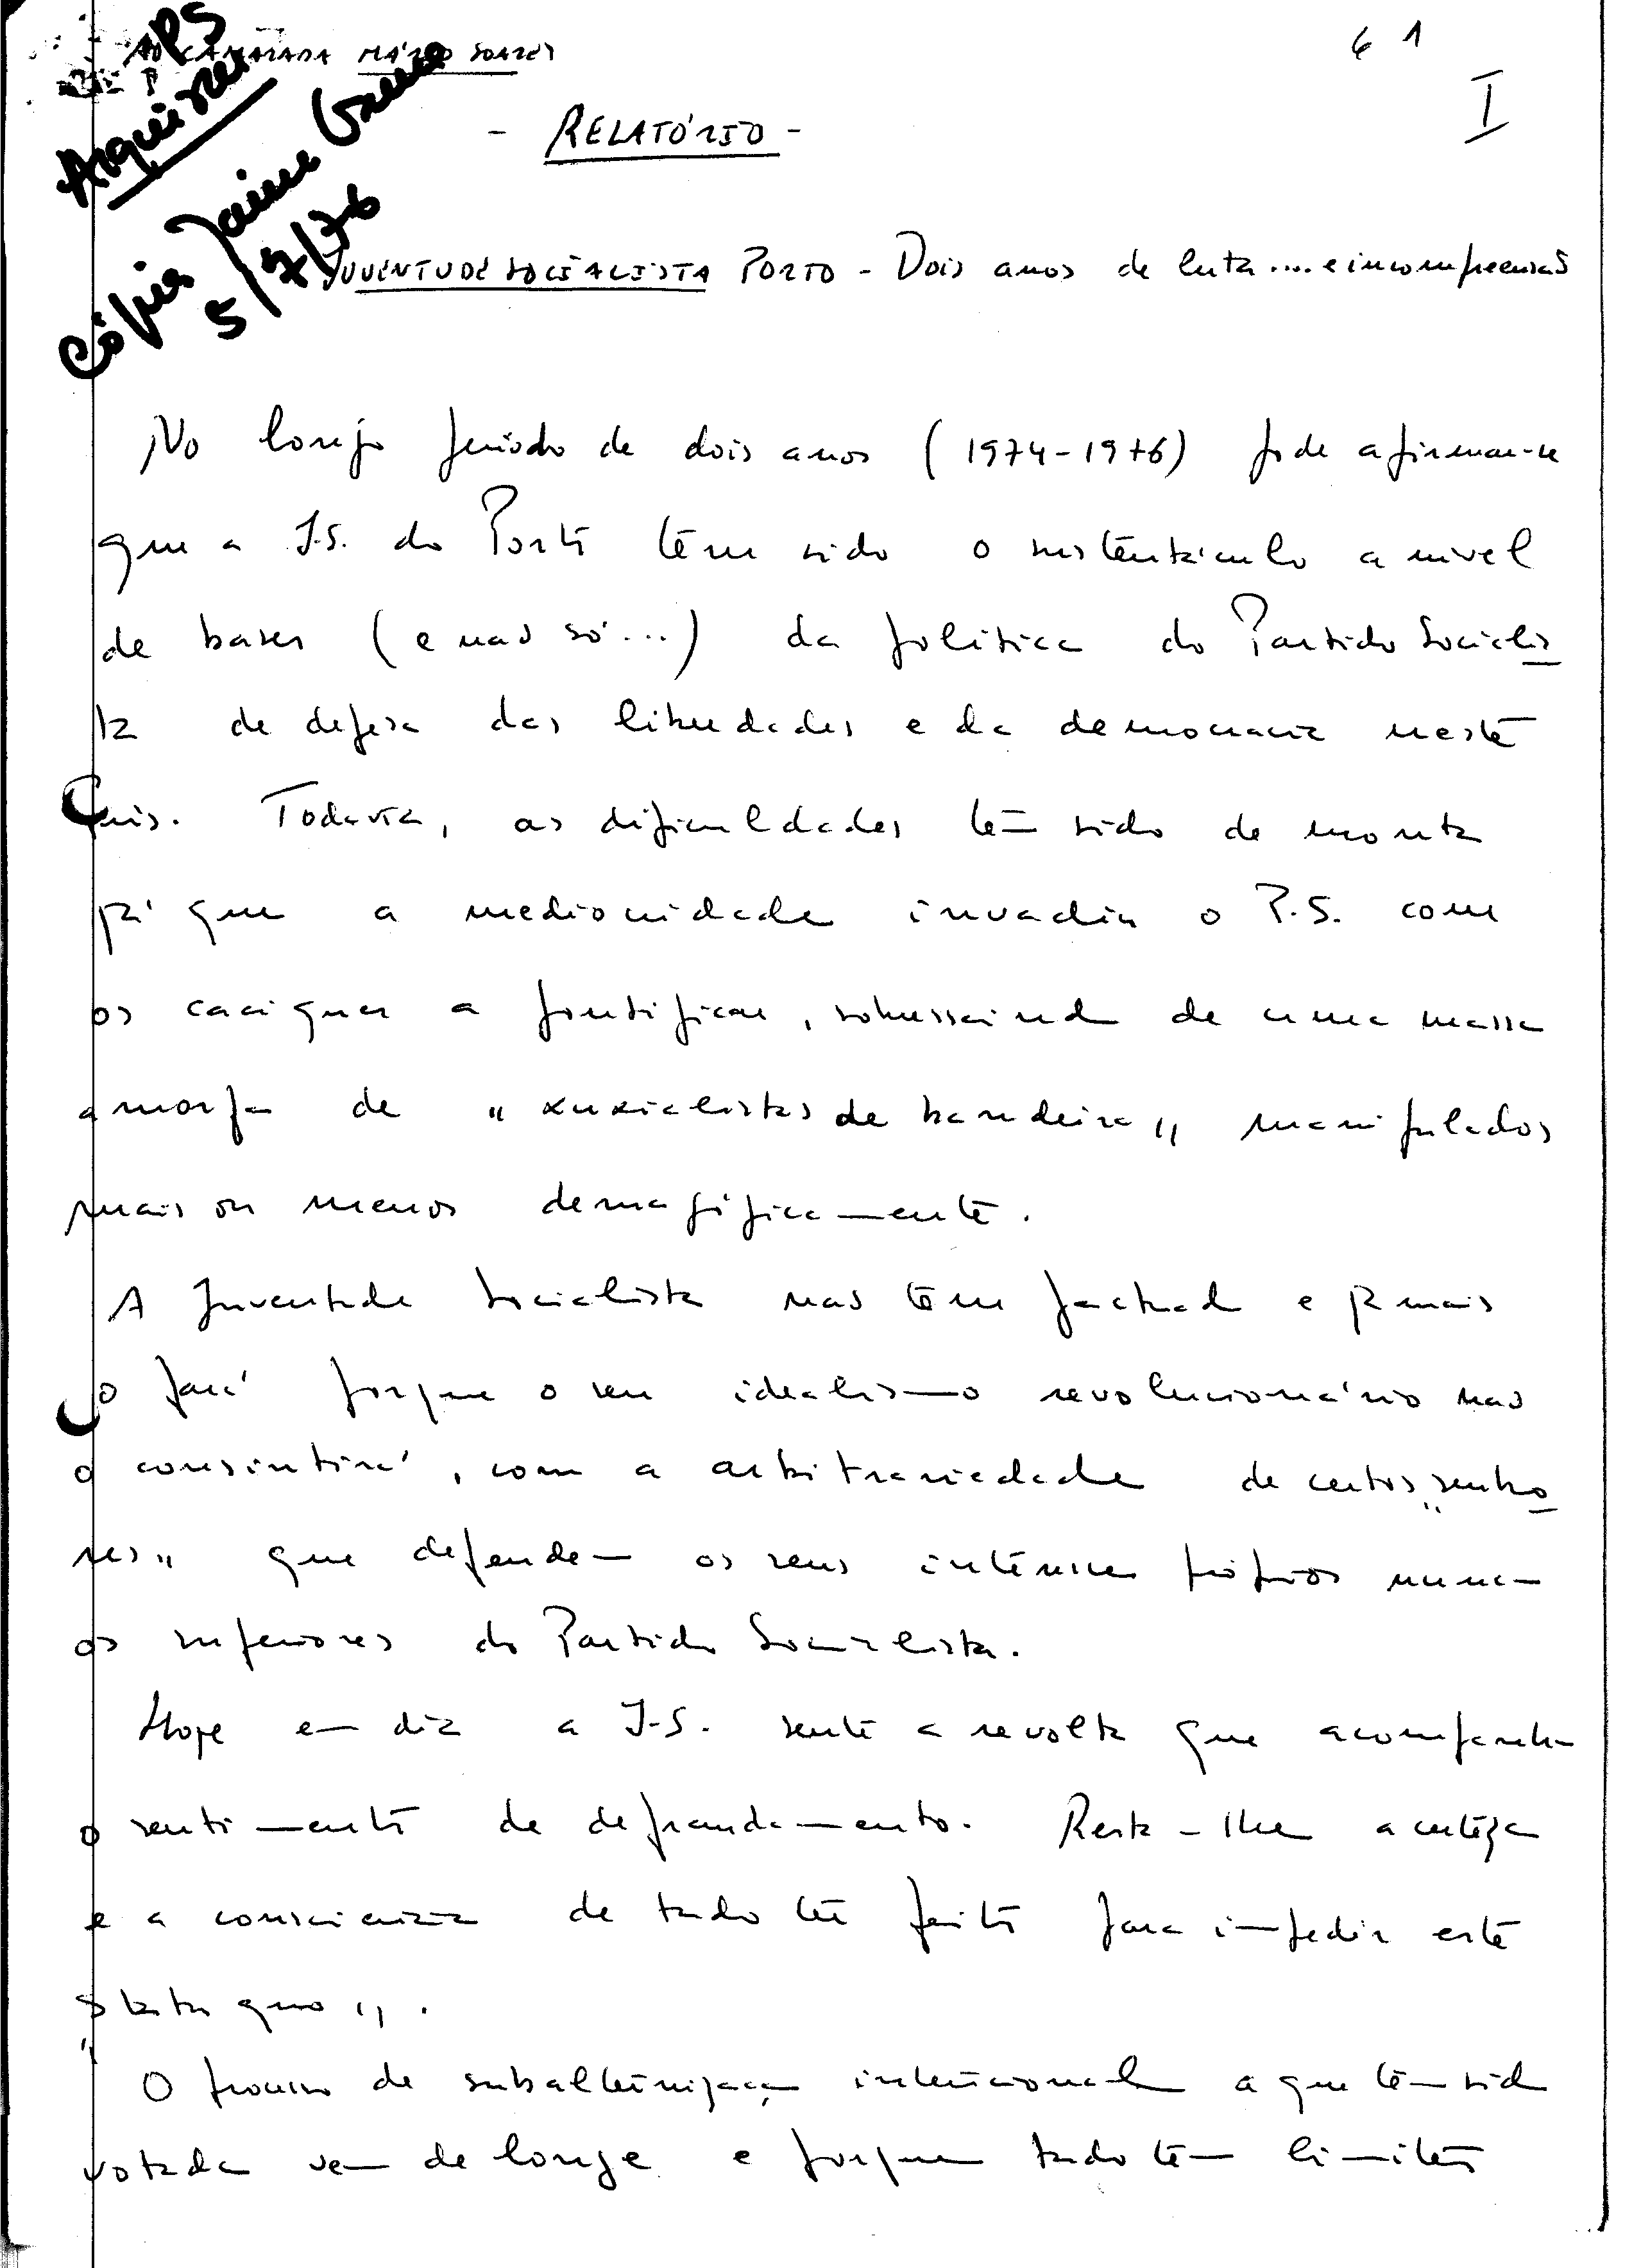 AO CAMARADA MÁRIO SOARES
6 1
I
PS
Arqueivar
Cópia Jaime Gama
5/7/76
- RELATÓRIO -
JUVENTUDE SOCIALISTA PORTO - Dois anos de luta.... e incompreensão
No longo período de dois anos (1974-1976) pode afirmar-se
que a J.S. do Porto têm sido o sustentáculo a nivel
de bases (e não só...) da política do Partido Socialis
ta de defesa das liberdades e da democracia neste
País. Todavia, as dificuldades têm sido de monta
já que a mediocridade invadiu o P.S. com
os caciques a pontificar, sobressaindo de uma massa
amorfa de "xuxialistas de bandeira" manipulados
mais ou menos demagógicamente.
A Juventude Socialista não têm pactuado e jamais
o fará porque o seu idealismo revolucionário não
o consintirá, com a arbitrariedade de certos "senho
res" que defendem os seus interesses próprios nunca
os superiores do Partido Socialista.
Hoje em dia a J.S. sente a revolta que acompanha
o sentimento de defraudamento. Resta-lhe a certeza
e a consciencia de tudo ter feito para impedir este
"statu quo".
O processo de subalternização intencional a que têm sido
votada vem de longe e porque tudo tem limites